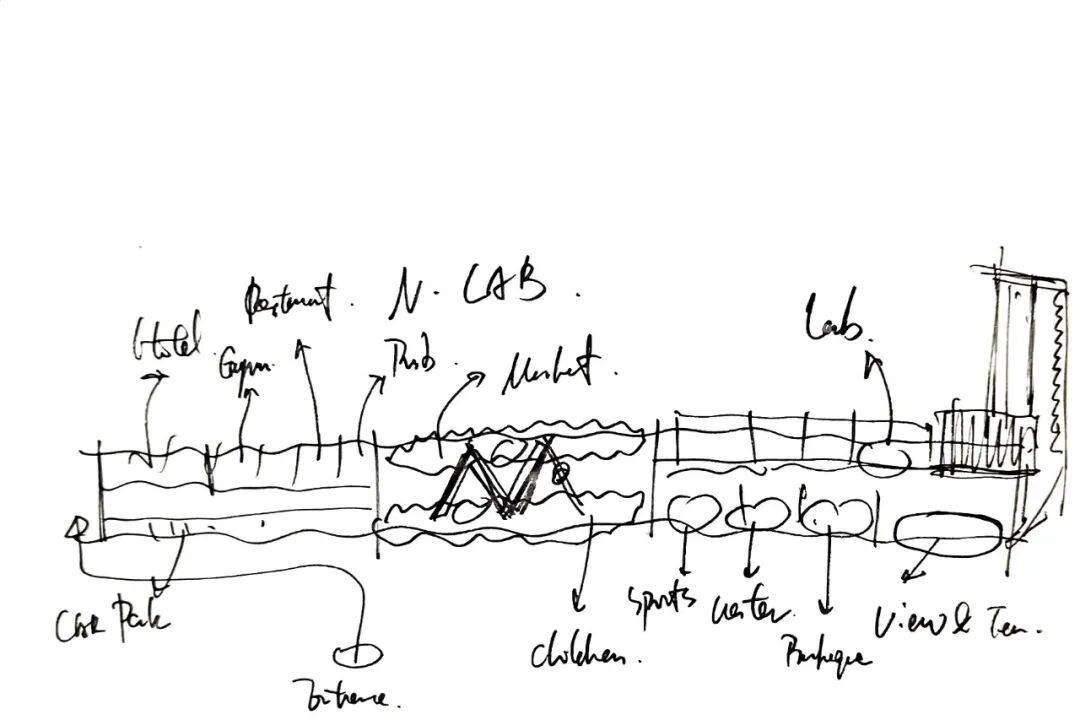 Restaurant.
N. LAB.
Hotel.
Gym.
Pub.
Market.
Lab.
Car Park
Entrance.
children.
sports
water.
Barbeque
View & Tea.